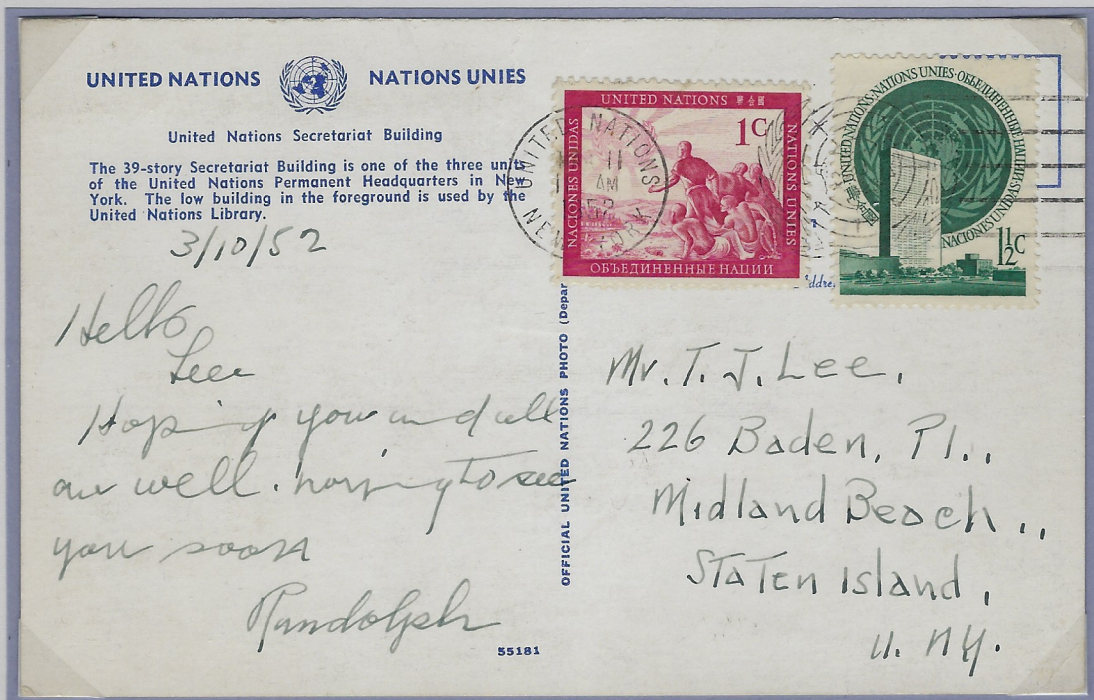 UNITED NATIONS NATIONS UNIES
United Nations Secretariat Building
The 39-story Secretariat Building is one of the three units
of the United Nations Permanent Headquarters in New
York. The low building in the foreground is used by the
United Nations Library.
3/10/52
Hello
Lee
Hoping you and all
are well. hoping to see
you soon
Randolph
55181
OFFICIAL UNITED NATIONS PHOTO (Depar
UNITED NATIONS 聯合國
1c
NACIONES UNIDAS
NATIONS UNIES
ОБЪЕДИНЕННЫЕ НАЦИИ
UNITED NATIONS
11
AM
1952
NEW YORK
UNITED NATIONS·NATIONS UNIES·ОБЪЕДИНЕННЫЕ НАЦИИ
NACIONES UNIDAS
聯合國
1½c
Addre
Mr. T. J. Lee,
226 Baden, Pl.,
Midland Beach.,
Staten Island,
11. NY.